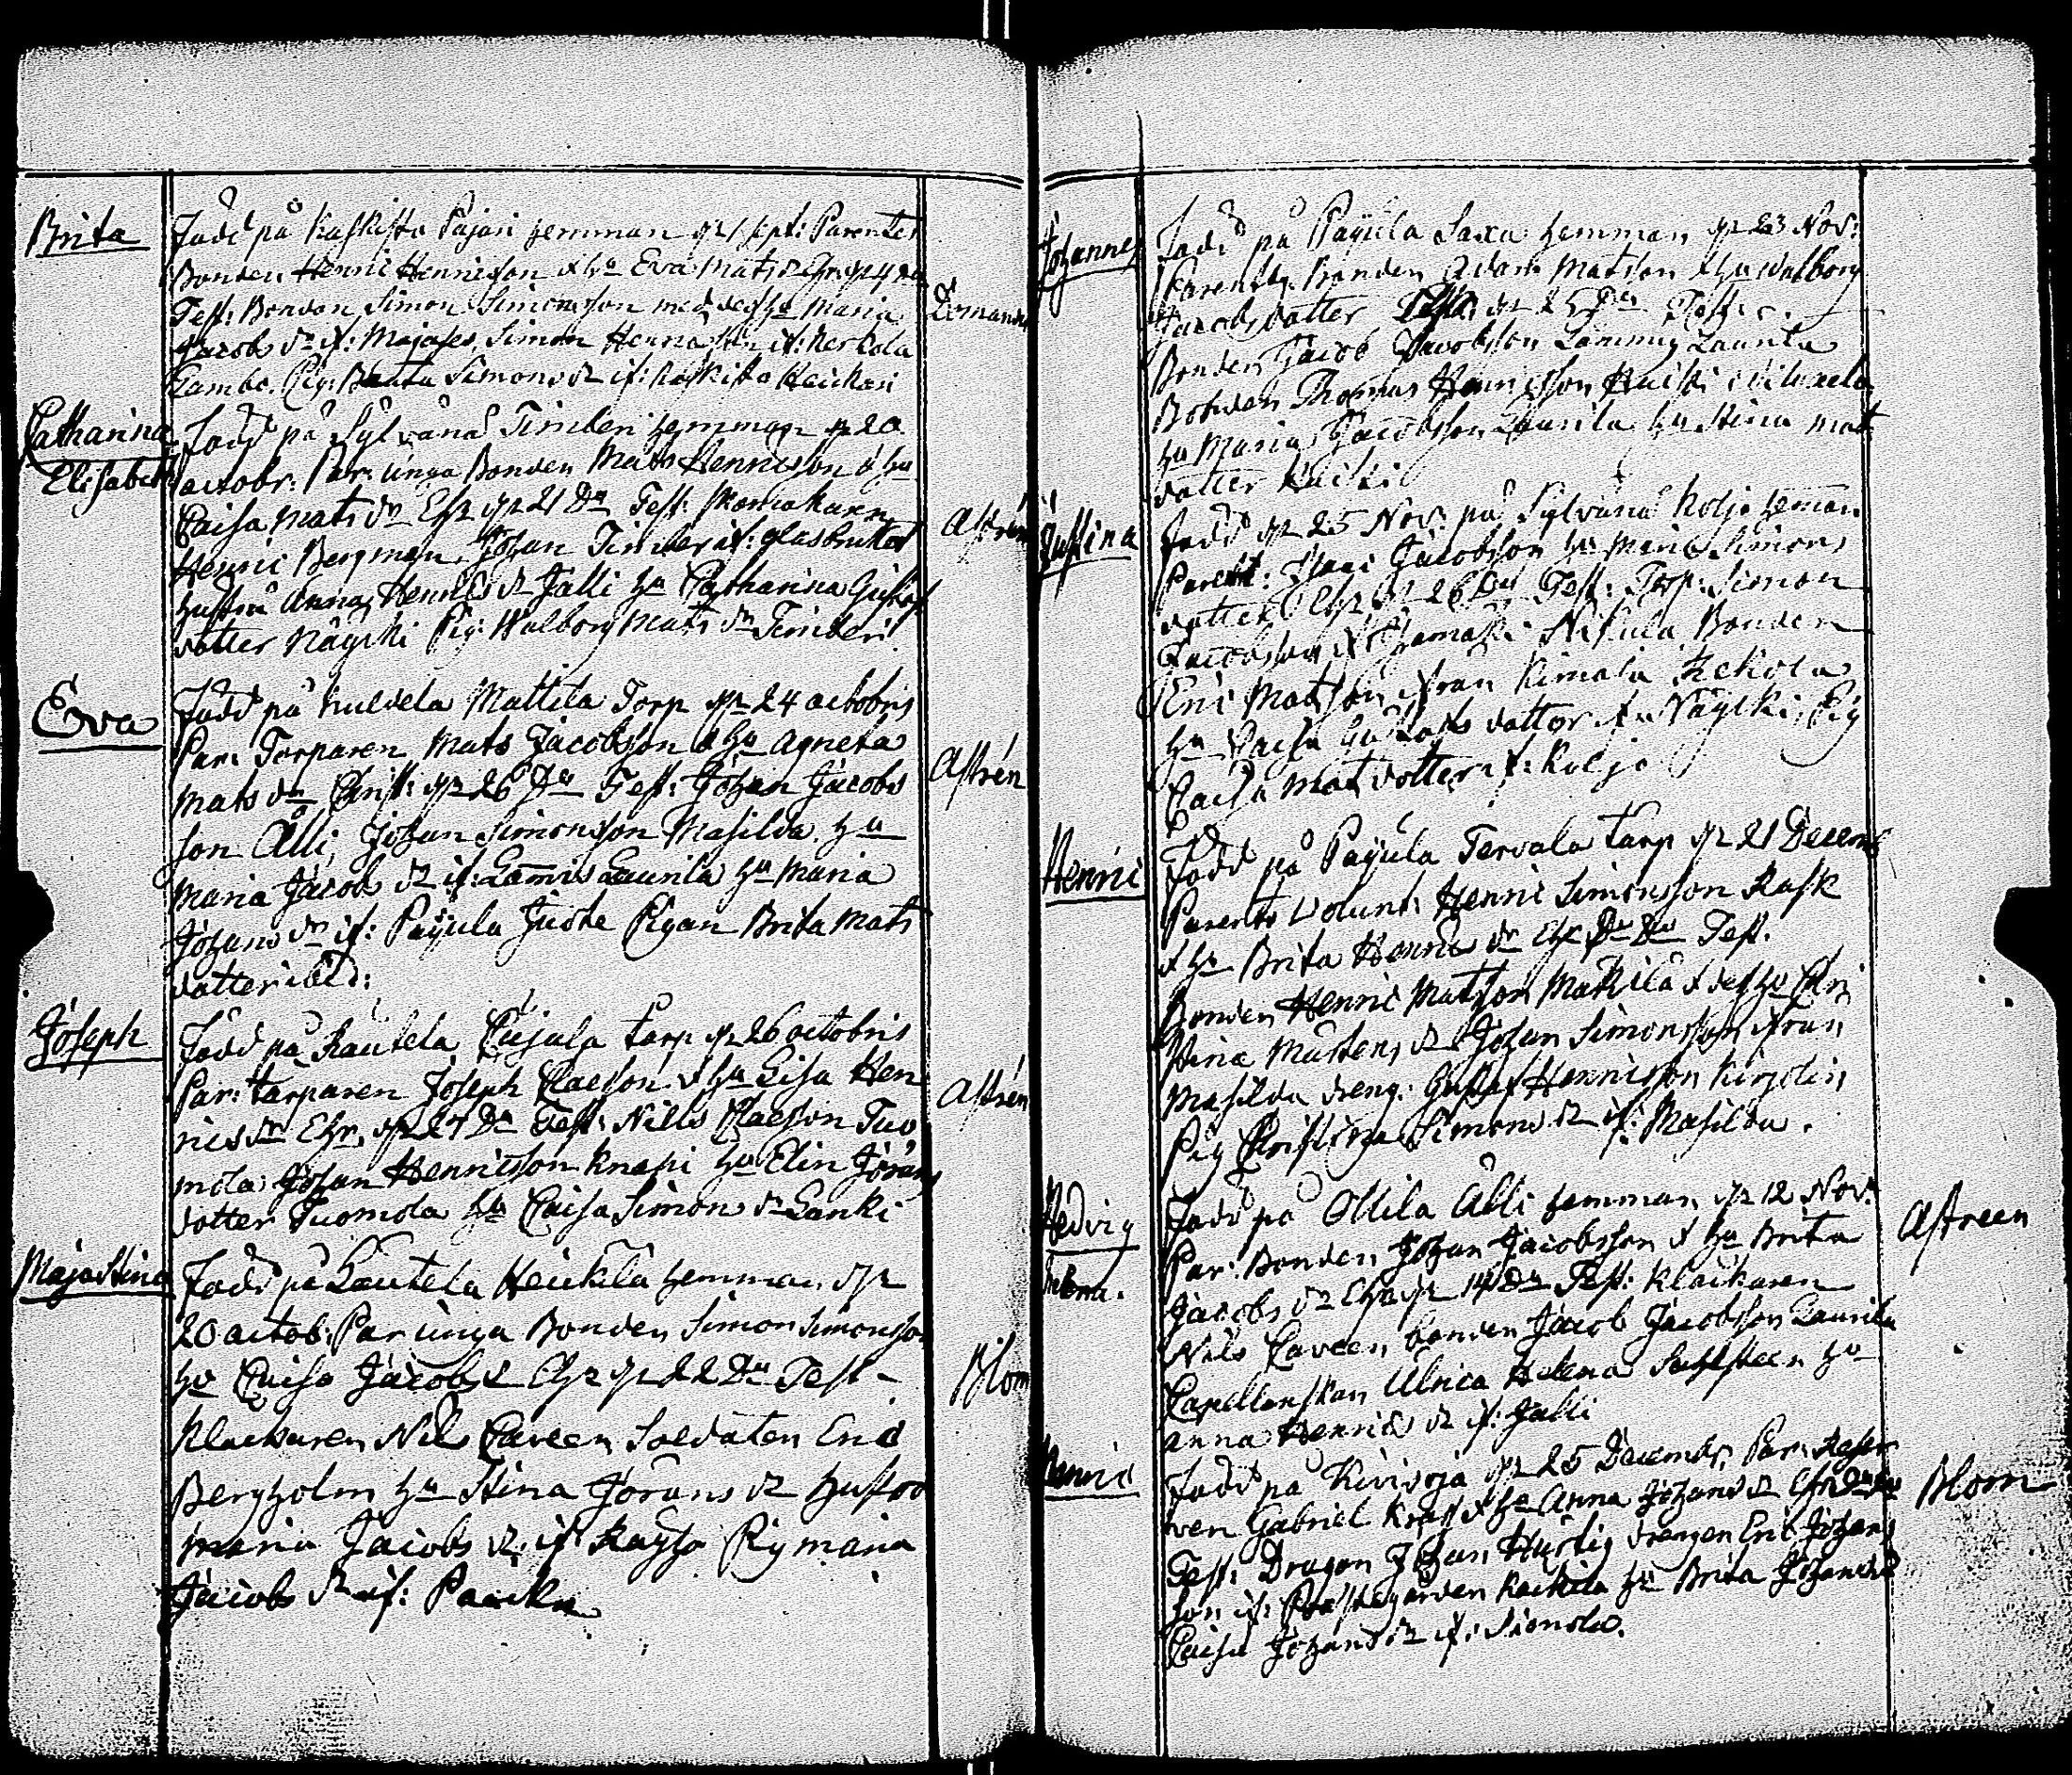 Brita
Född på Kaskisto Pajari hemman d. 1 sept: Parentes
Bonden Henric Henricsson & hu Eva Mats dr Chr. d. 4
Test: Bonden Simon Simonsson med des hu Maria
Domann
Jacobs dr if: Majases, Simon Henricsson if: Kerkola
Lambo. Pig. Beata Simons dr if: Kaskisto Heickari
Catharina
Elisabeth
Född på Sylvänä Timberi hemman d. 20
octobr: Par: unga Bonden Mats Henricsson & hu
Caisa Mats dr Chr d. 21 Du Test: Skomakaren
Astrén
Henric Bergman Johan Timber if: glasbruket
hustru Anna Henrics dr Jalli hu Catharina Gustafs
dotter Näyski Pig: Walborg Mats dr Timberi
Eva
Född på Kuldela Mattila Torp d. 24 octobris
Par: Torparen Mats Jacobsson & hu Agneta
Mats dr Christ: d. 26 Du Test: Johan Jacobs
Astrén
son Ålli, Johan Simonsson Masilda hu
Maria Jacobs dr if: Lammis Laurila hu Maria
Johans dr if: Päyula Juote Pigan Brita Mats
dotter ibid:
Joseph
Född på Kautela Cujala tarp d. 26 octobris
Par: tarparen Joseph Claeson & hu Lisa Hen
Astrén
rics dr Chr. d. 27 Du Test: Nills Claeson Tuo
mola Johan Henricsson Knapi hu Elin Jörans
dotter Tuomola hu Caisa Simons dr Lanki
Maja Stina
Född på Lautela Heickla hemman d.
20 actob: Par unga Bonden Simon Simonsson
hu Caisa Jacobs d Chr d. 22 Du Test
Blom
Klockaren Nils Caveen Soldaten Eric
Bergholm hu Stina Jörans dr hustro
Maria Jacobs dr: if Kayso Pig Maria
Jacobs dr if: Paicka
Johannes
Född på Päyula Saxa hemman d. 23 Nov:
Parentes. Bonden Adam Matsson & hu Walborg
Jacobs dotter d. 25 Du Test:
Bonden Jacob Jacobsson Lammis Laurila
Bonden Thomas Henricsson Kuiki
hu Maria Jacobsson Laurila hu Stina Mats
dotter Kuiki
Justina
Född d. 25 Nov: på Sylvänä Kolja heman
Parent: Isaac Jacobsson hu Maria Simons
dotter Chr d. 26 Du Test: Torp: Simon
Jacobsson Nikula Bonden
Eric Matsson ifrån Kimala Kekola
hu Caisa Gustafs dotter if: Näyski, Pig
Caisa Mats dotter if: Kolja
Henric
Född på Päyula Tervala tarp d. 21 Decemb
Parents Volunt: Henric Simonsson Rask
& hu Brita Henrics dr Chr Du Test.
Bonden Henric Matsson Makila & des hu Chri
stina Mårtens dr Johan Simonsson ifrån
Masilda dreng: Gustaf Henricsson Kirjolin
Pig Christina Simons dr if: Masilda.
Hedvig
Helena.
Född på Ollila Ålli hemman d. 12 Nov:
Astreen
Par: Bonden Johan Jacobsson & hu Brita
Jacobs dr Chr d. 14 Du Test: Klockaren
Nils Caveen bonden Jacob Jacobsson Laurila
Capellanskan Ulrica Helena Sahlsteen hu
Anna Henrics dr if: Jalli
Henric
Född på Kivioja d. 25 Decembr. Par: Reser
Blom
ven Gabriel Krass & hu Anna Johans dr Chr
Test: Dragon Johan Hurtig drengen Eric Johans
son if: Prästegården Kackila hu Brita Johans dr
Caisa Johans dr if: Simola.